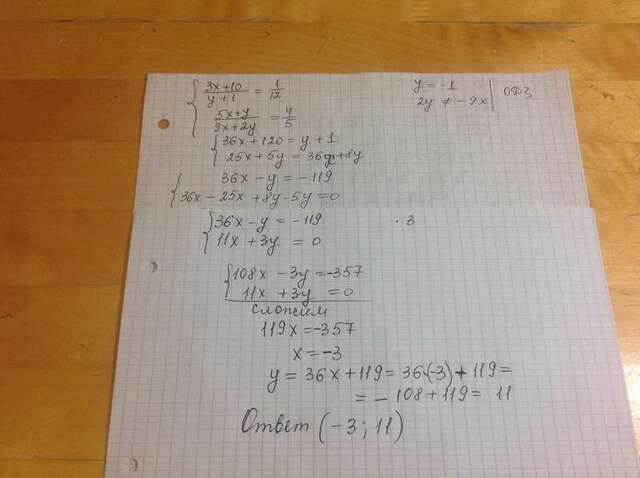 { (3x+10)/(y+1) = 1/12
(5x+y)/(9x+2y) = 4/5
y = -1
2y ≠ -9x | ОДЗ
{ 36x+120 = y+1
25x+5y = 36x+8y
{ 36x-y = -119
36x-25x+8y-5y=0
{ 36x-y = -119 · 3
11x+3y = 0
{ 108x-3y=-357
11x+3y = 0
сложим
119x=-357
x=-3
y = 36x+119 = 36·(-3)+119 =
= -108+119 = 11
Ответ (-3; 11)